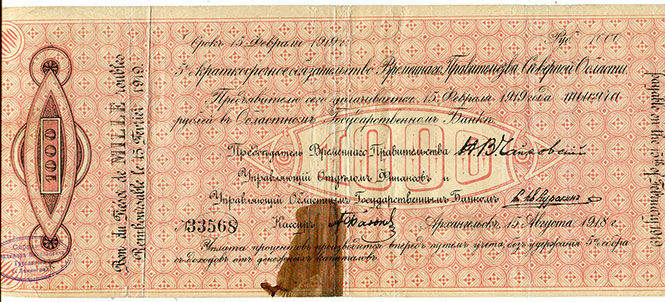 Срокъ 15 Февраля 1919 г.
Руб. 1000
5% краткосрочное обязательство Временнаго Правительства Северной Области.
Предъявителю сего уплачивается 15 Февраля 1919 года тысяча
рублей въ Областномъ Государственномъ Банкѣ.
1000
Председатель Временнаго Правительства Н. В. Чайковский
Управляющий Отделомъ Финансовъ и
Управляющий Областнымъ Государственнымъ Банкомъ
№ 33568 Кассиръ
Архангельскъ, 15 Августа 1918 г.
Уплата процентовъ производится впередъ путемъ учета, безъ удержания 5% сбора
съ доходовъ отъ денежныхъ капиталовъ.
1000
Bon du Trésor de MILLE roubles
Remboursable le 15 Février 1919
payable on the 15th of February 1919